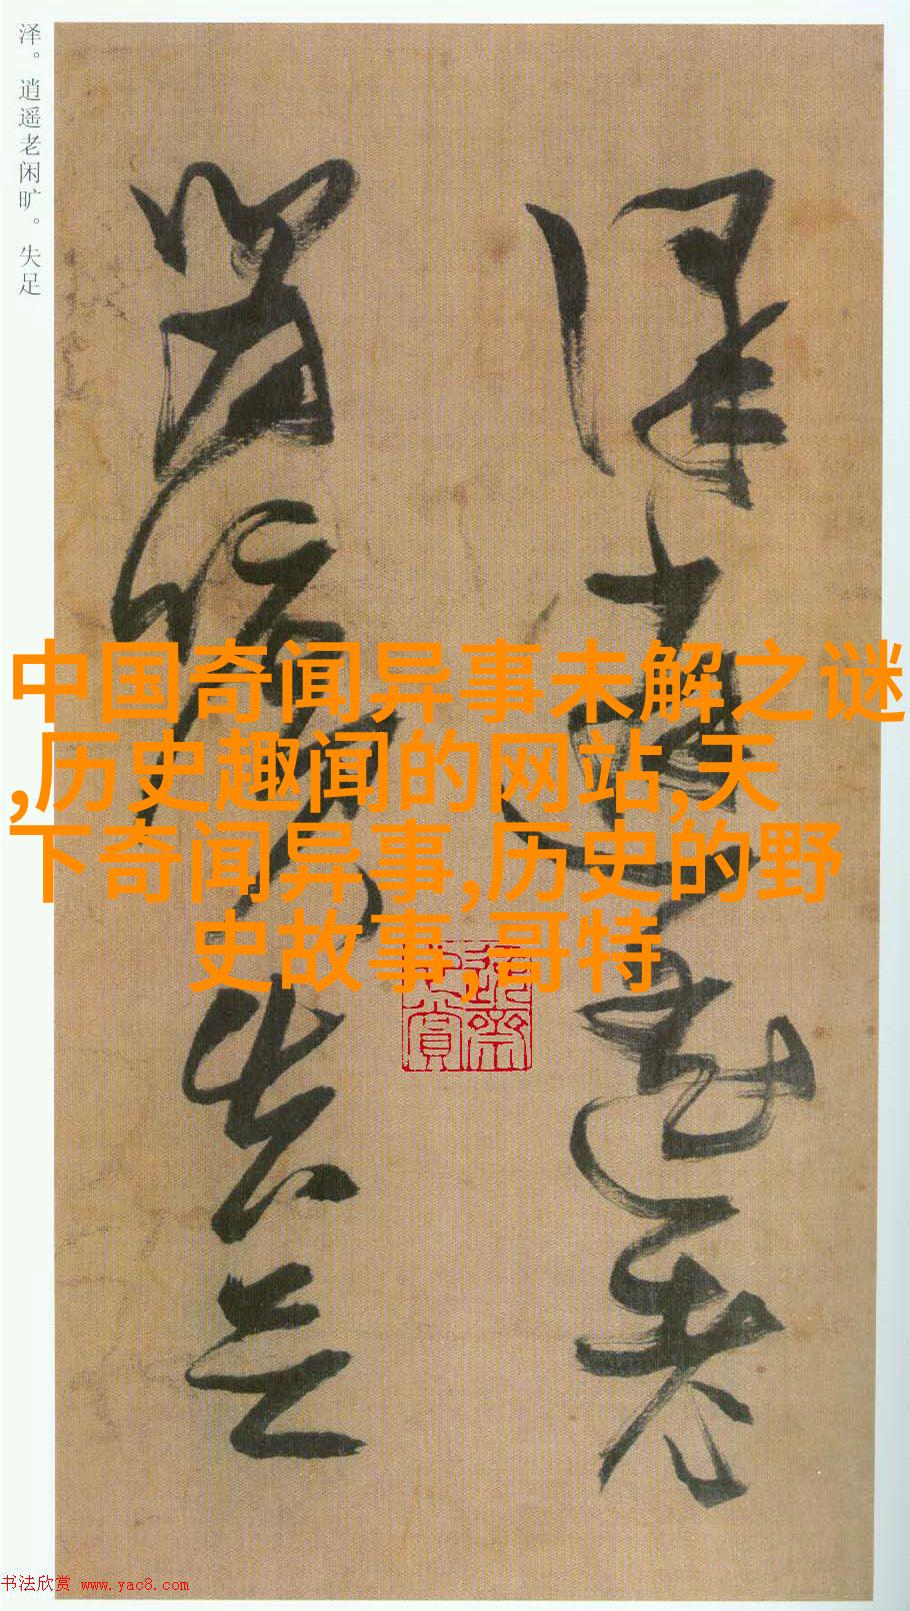 泽。逍遥老闲旷。失足
泽逍遥老
闲旷失足
中国奇闻异事未解之谜
,历史趣闻的网站,天
下奇闻异事,历史的野
史故事,哥特
书法欣赏 www.yac8.com